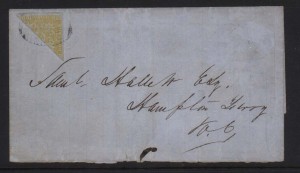 Saml. Hallett Esq.
Hampton Ferry
K. C.